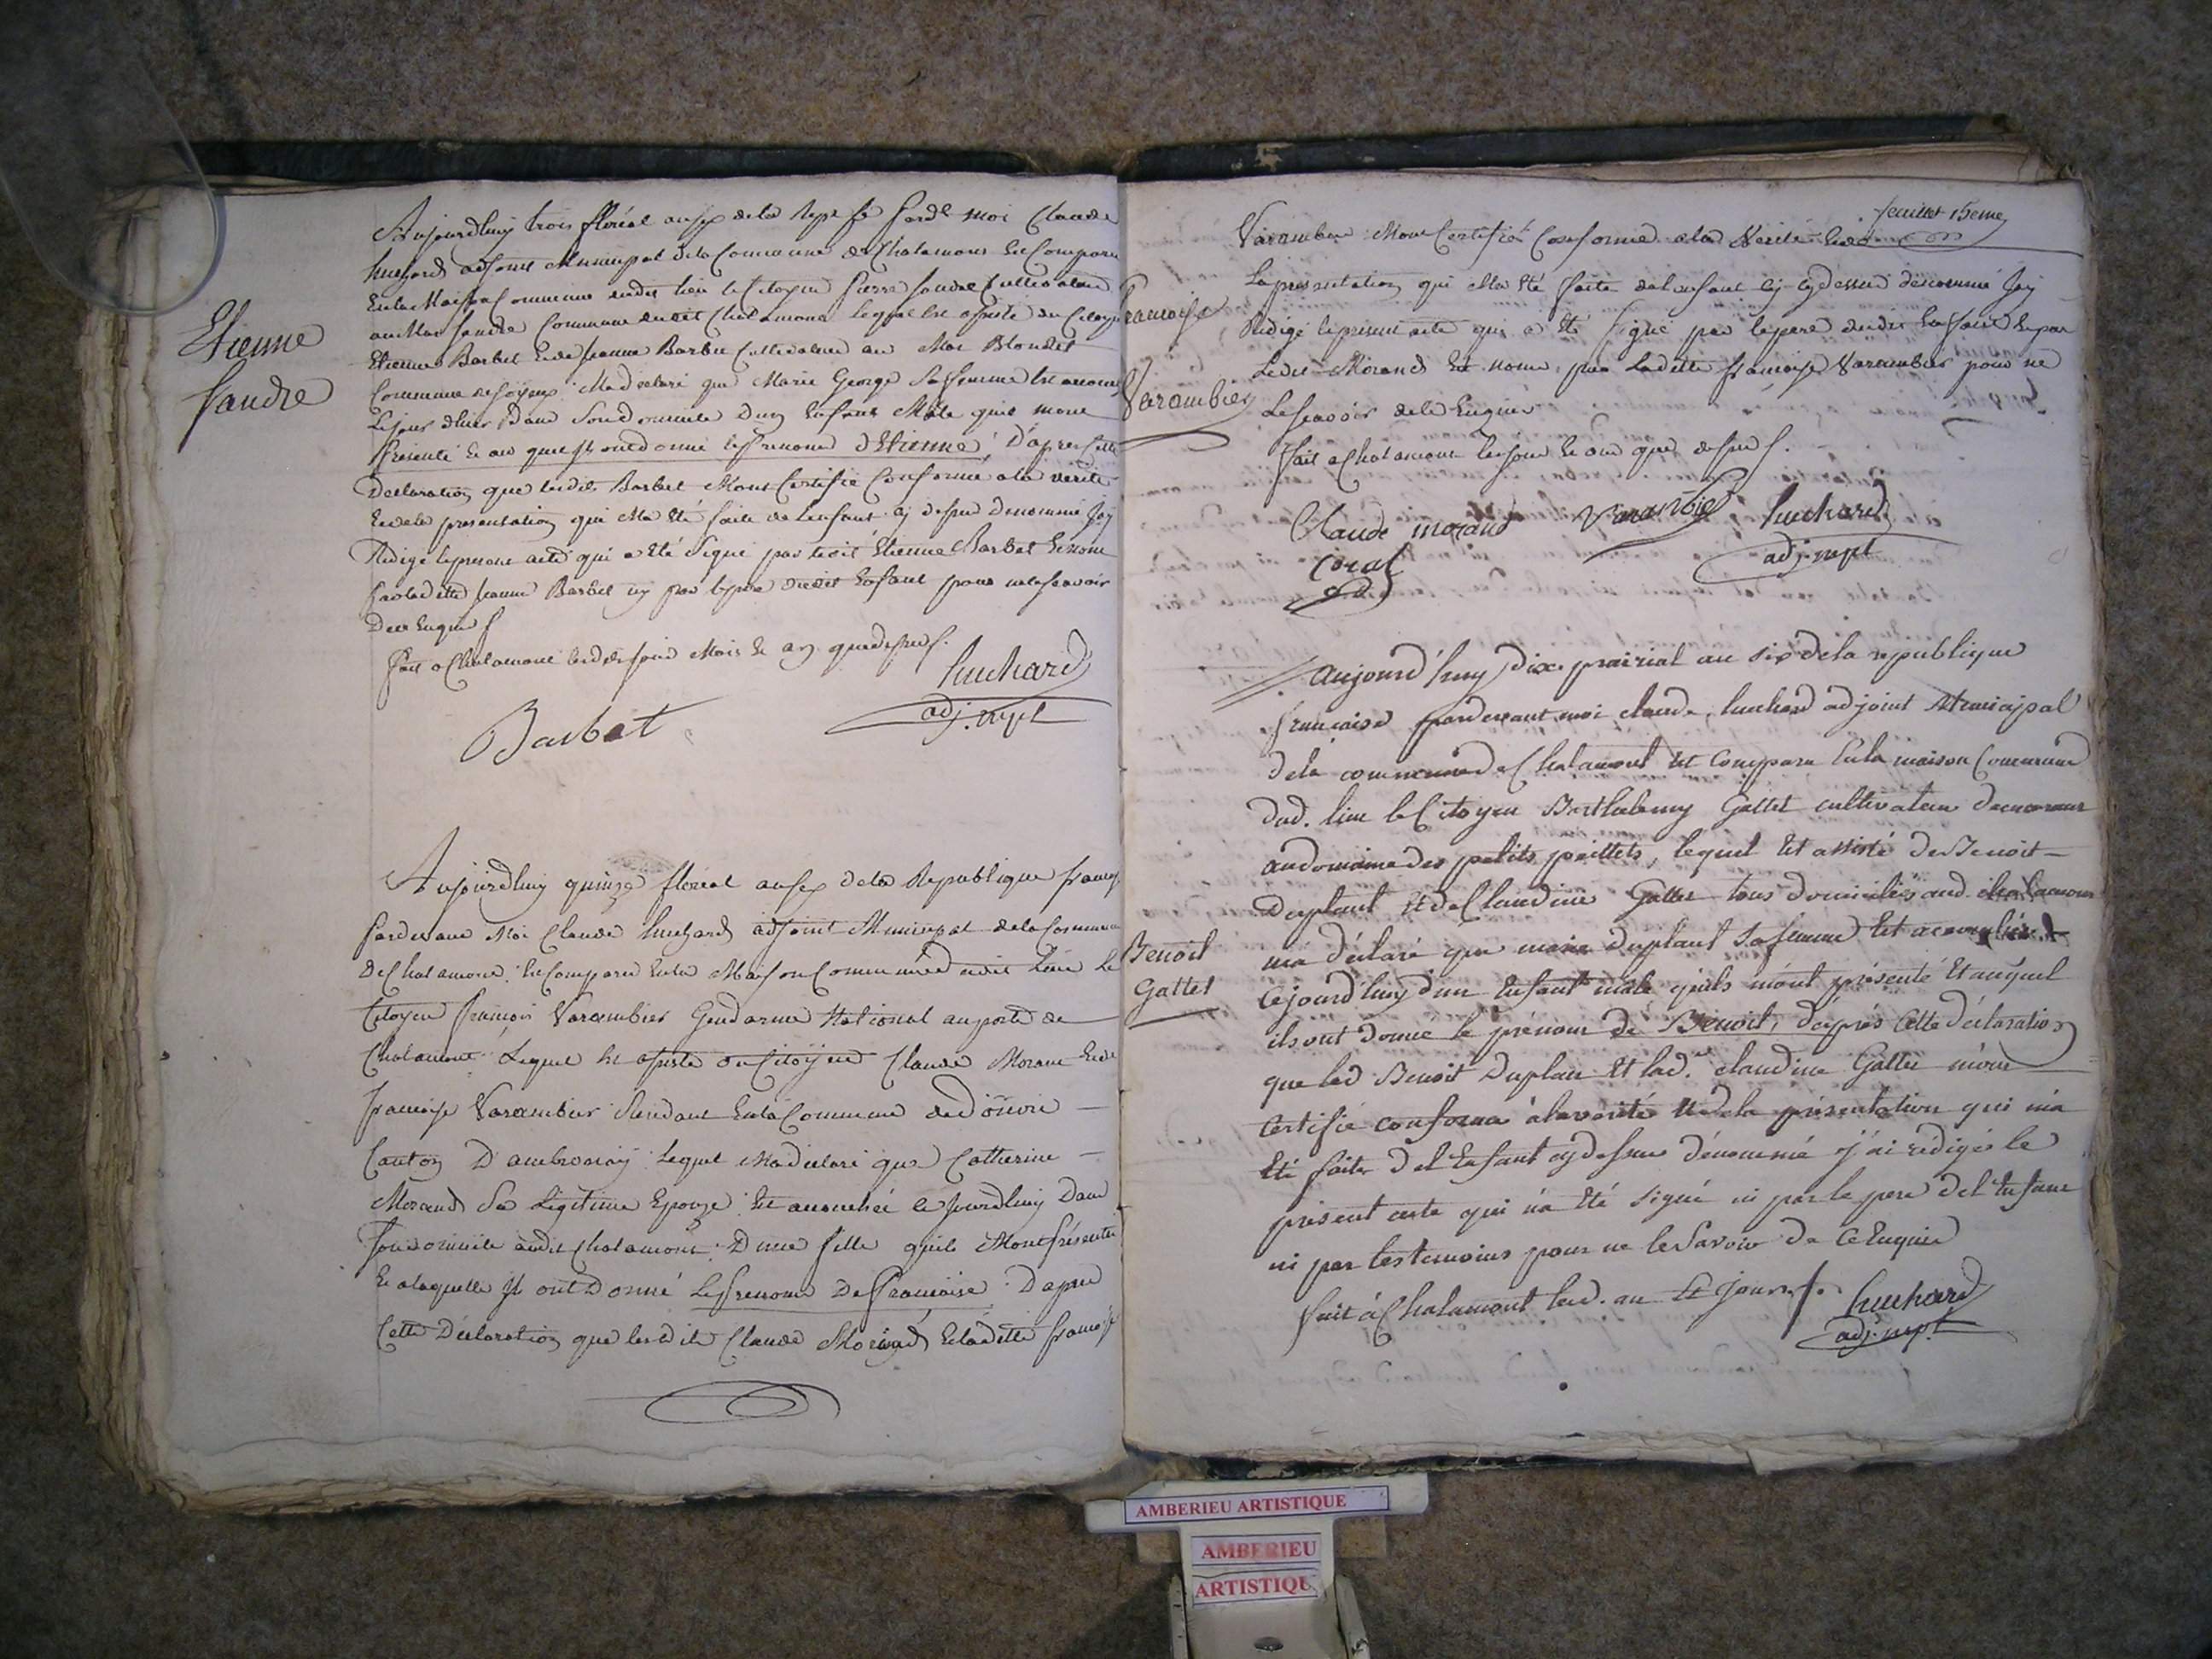 Etienne
fandre
Aujourdhuy trois floréal an six de la Rep. fse pard.t moi Claude
huchard adjoint Municipal de la Commune de Chalamont Est Comparu
En la Maison Commune dudit lieu le Citoyen pierre fandre Cultivateur
au Mas fandre Commune dudit Chalamont lequel Est assisté du Citoyen
Etienne Barbet Et de jeanne Barbet Cultivateur au Mas Blondel
Commune de joyeux. M'a déclaré que Marie George Sa femme Est accouchée
Le jour dhier Dans Son domicile Dun Enfant Mâle quil mont
Présenté Et au quel ils ont donné les Prenoms d'Etienne, D'après Cette
Declaration que lesdits Barbet Mont Certifié Conforme a la vérité
Et de la presentation qui Ma Eté faite de Lenfant cy dessus denommé Jay
Redigé le present acte qui a Eté Signé par ledit Etienne Barbet Et non
par ladette jeanne Barbet ny par le pere dudit Enfant pour ne le scavoir
De ce Enquis
fait a Chalamont lesdits jour Mois Et an que dessus.
huchard
adj. mpl
Barbet
Aujourdhuy quinze floréal an six de la Republique françse
Pardevant Moi Claude huchard adjoint Municipal de la Commune
De Chalamont Est Comparu En la Maison Commune dudit Lieu Le
Citoyen françois Varambier Gendarme National au poste de
Chalamont. Lequel Est assisté du Citoyen Claude Morand Et de
françoise Varambier Residant En la Commune de
Canton D'ambronay Lequel Ma déclaré que Catherine
Morand Sa Légitime Epouze Est accouchée Ce jourdhuy Dans
Son domicile audit Chalamont. D'une fille quils Mont Présentée
Et a laquelle Ils ont Donné Les Prenoms De françoise. D'après
Cette Déclaration que lesdits Claude Morand Et ladette françoise
feuillet 15eme
françoise
Varambier
Varambier Mont Certifié Conforme a la Verité Et de
La presentation qui Ma Eté faite de lenfant cy dessus denommé Jay
Redigé le present acte qui a Eté Signé par le pere dudit Enfant Et par
Ledit Morand Et non par Ladette françoise Varambier pour ne
Le scavoir de ce Enquis
fait a Chalamont les jour Et an que dessus.
Claude morand
Varambier
huchard
adj. mpl
Benoit
Gattet
aujourd'huy dix prairial an six de la republique
française pardevant moi claude huchard adjoint Municipal
de la commune de Chalamont Est Comparu En la maison Commune
dud. lieu le Citoyen Barthelemy Gattet cultivateur demeurant
au domaine des petits peillets, lequel Est assisté de Benoit
Duplant Et de Claudine Gattet tous domiciliés aud. chalamont
ma déclaré que marie duplant Sa femme Est accouchée
Cejourd'huy d'un Enfant mâle quils m'ont présenté Et auquel
ils ont donné le prénom de Benoit, d'après Cette déclaration
que led Benoit Duplan Et lad. claudine Gattet m'ont
Certifié conforme à la vérité Et de la présentation qui m'a
Eté faite de l'Enfant cy dessus dénommé j'ai rédigé le
présent acte qui n'a Eté Signé ni par le pere de l'Enfant
ni par les temoins pour ne le Savoir De Ce Enquis
fait à Chalamont lesd. an Et jour.
huchard
adj. mpl
AMBERIEU ARTISTIQUE
AMBERIEU
ARTISTIQUE